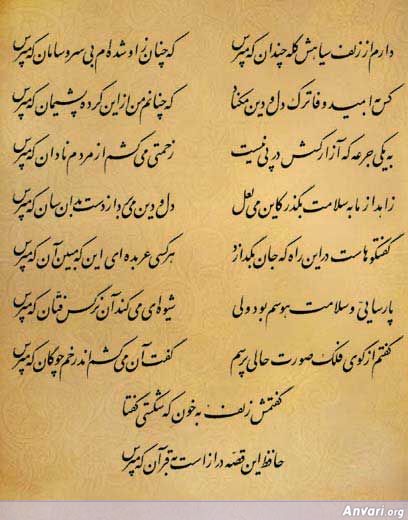 دارم از زلف سیاهش گله چندان که مپرس که چنان ز او شده‌ام بی سر و سامان که مپرس
کس به امید وفا ترک دل و دین مکناد که چنانم من از این کرده پشیمان که مپرس
به یکی جرعه که آزار کسش در پی نیست زحمتی می‌کشم از مردم نادان که مپرس
زاهد از ما به سلامت بگذر کاین می لعل دل و دین می‌برد از دست بدان سان که مپرس
گفتگوهاست در این راه که جان بگدازد هر کسی عربده‌ای این که مبین آن که مپرس
پارسایی و سلامت هوسم بود ولی شیوه‌ای می‌کند آن نرگس فتان که مپرس
گفتم از گوی فلک صورت حالی پرسم گفت آن می‌کشم اندر خم چوگان که مپرس
گفتمش زلف به خون که شکستی گفتا
حافظ این قصه دراز است به قرآن که مپرس
Anvari.org